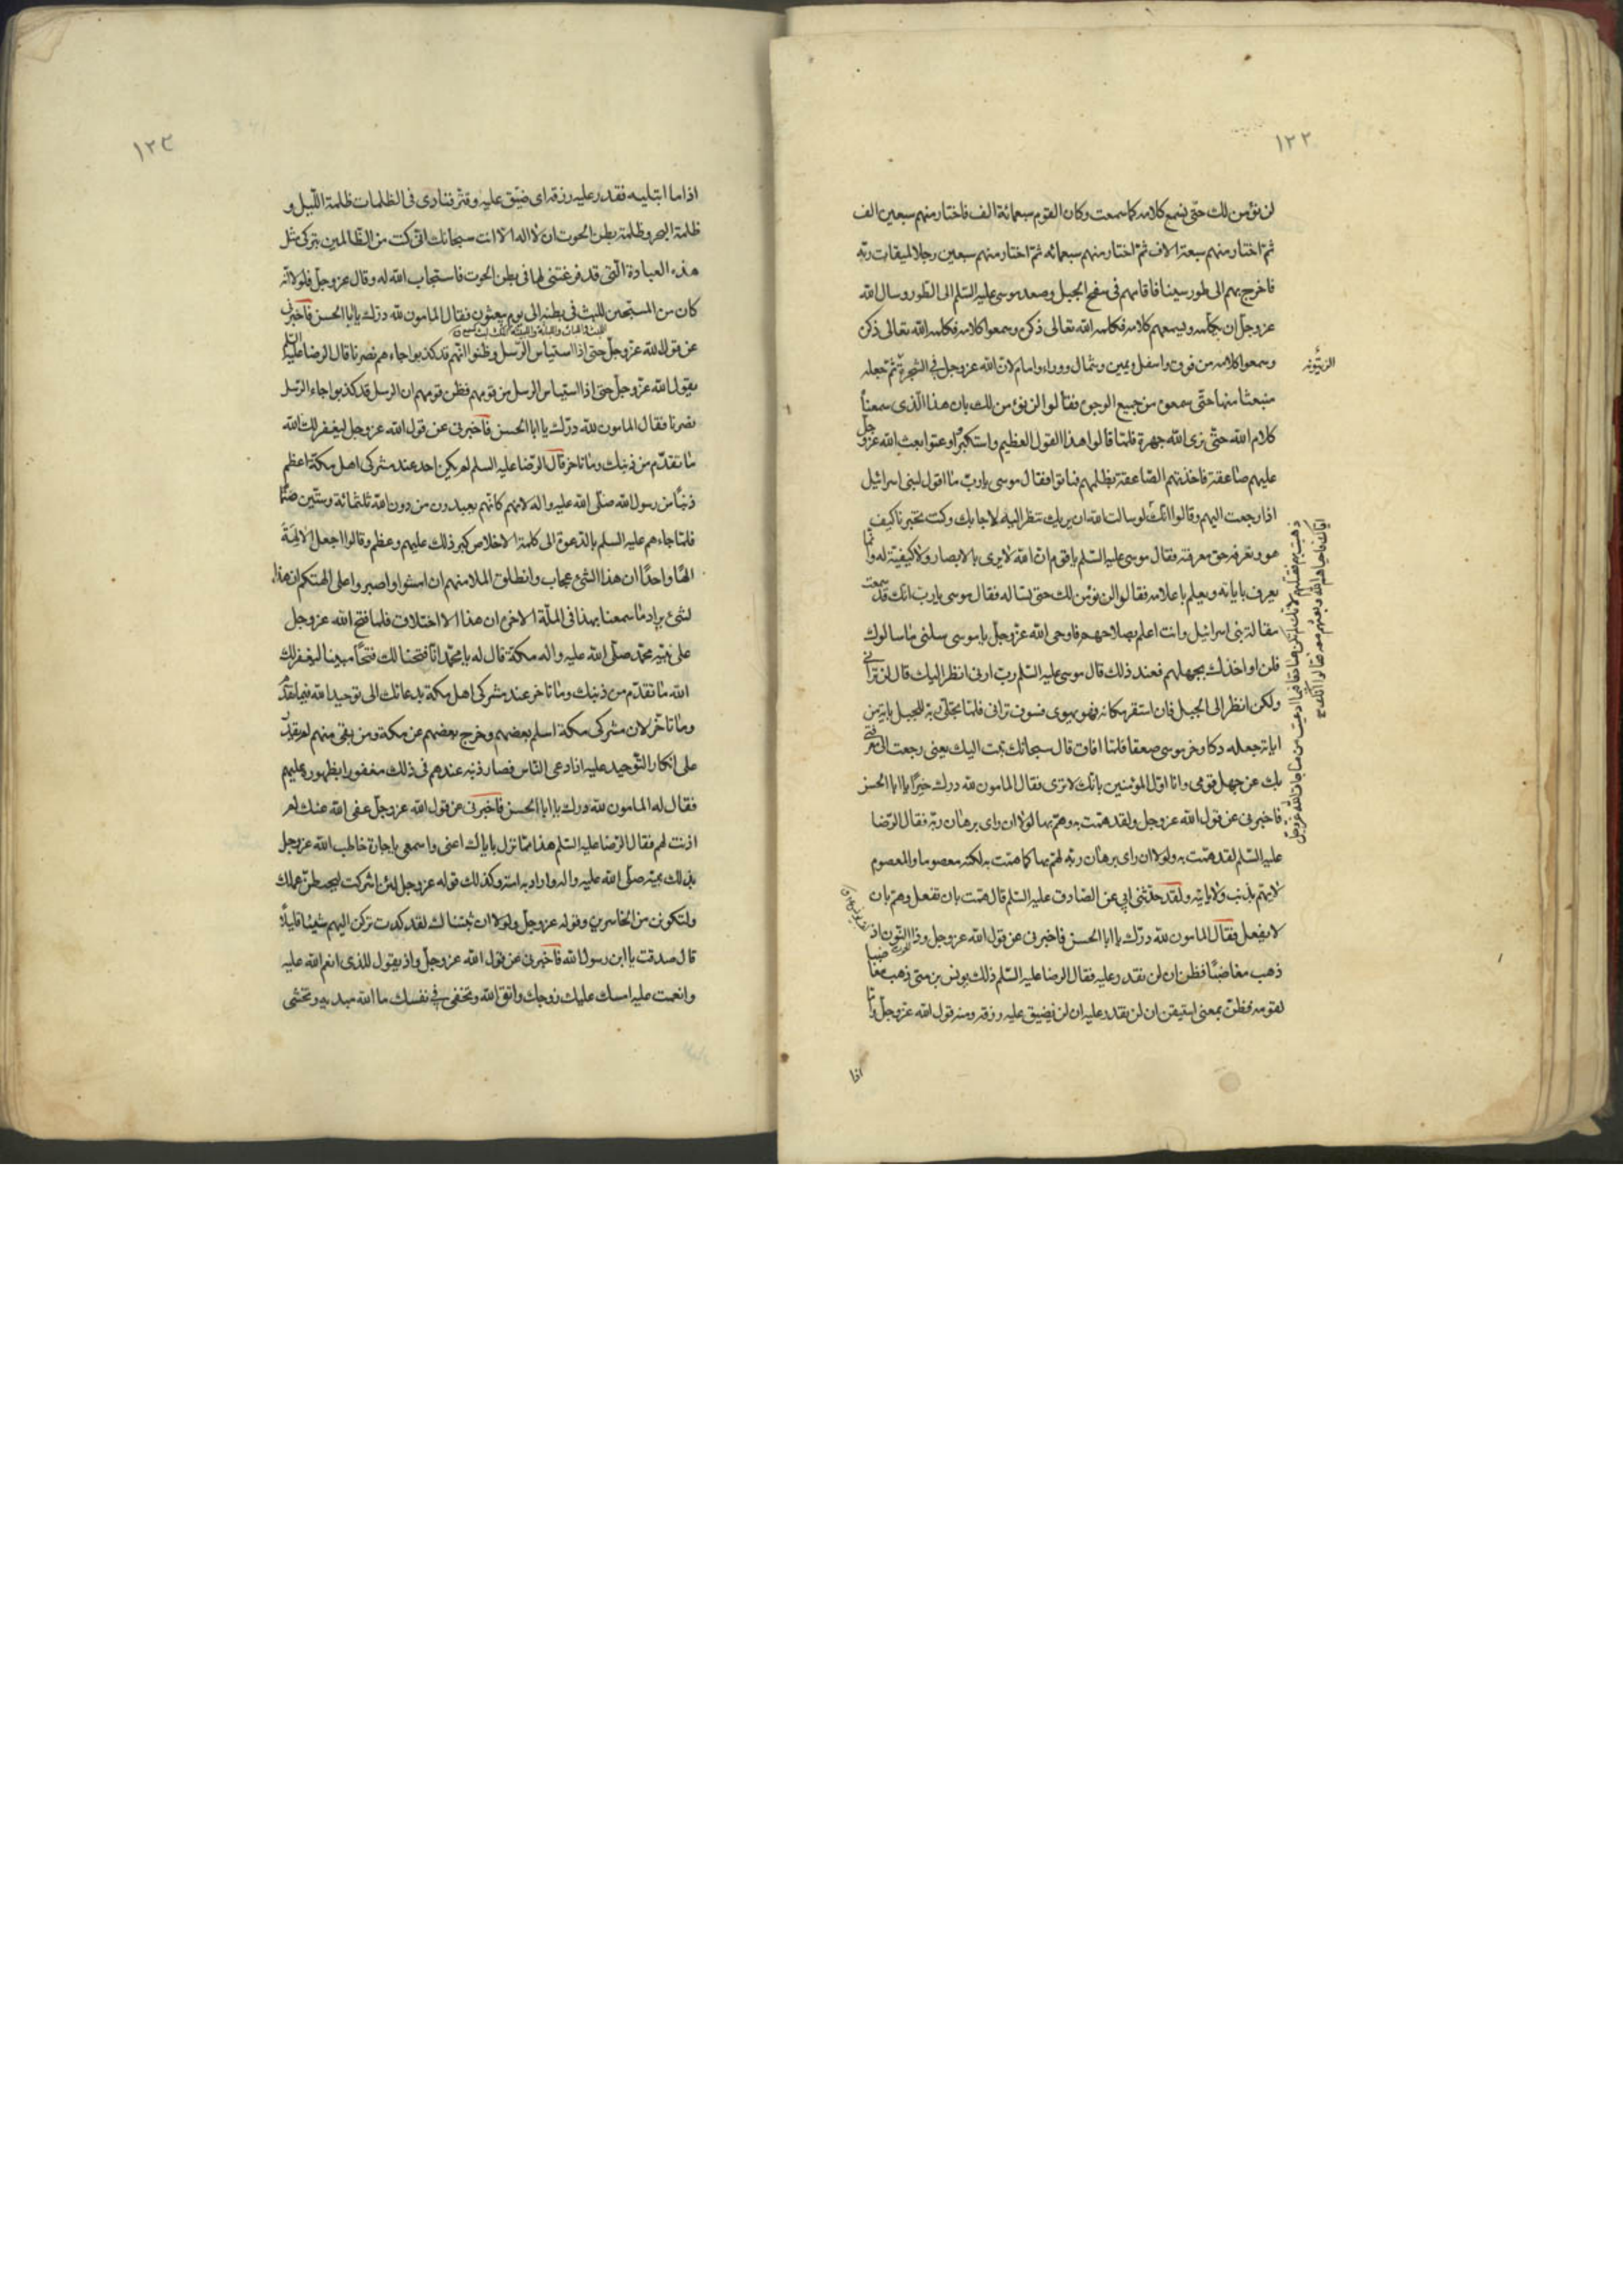 ١٢٢
لن نؤمن لك حتى نسمع كلامه كما سمعت وكان القوم سبعمائة الف فاختار منهم سبعين الف
ثم اختار منهم سبعة الاف ثم اختار منهم سبعمائه ثم اختار منهم سبعين رجلا لميقات ربه
فاخرج بهم الى طور سينا فاقامهم فى سفح الجبل وصعد موسى عليه السلم الى الطور وسال الله
عز وجل ان يكلمه ويسمعهم كلامه فكلمه الله تعالى ذكره وسمعوا كلامه فكلمه الله تعالى ذكره
وسمعوا كلامه من فوق واسفل ويمين وشمال ووراء وامام لان الله عز وجل فى الشجرة ثم جعله
الزيتونه
منبعثا منها حتى سمعوه من جميع الوجوه فقالوا لن نؤمن لك بان هذا الذى سمعناه
كلام الله حتى نرى الله جهرة فلما قالوا هذا القول العظيم واستكبروا وعتوا بعث الله عز وجل
عليهم صاعقة فاخذتهم الصاعقة بظلمهم فماتوا فقال موسى يا رب ما اقول لبنى اسرائيل
اذا رجعت اليهم وقالوا انك لو سالت الله ان يريك تنظر اليه لاجابك وكنت تخبرنا كيف
ذهبت بهم فقتلتهم لانك لم تكن صادقا فيما ادعيت من مناجات الله عز وجل
اياك فاحياهم الله وبعثهم معه فقالوا انك صح
هو ونعرفه حق معرفته فقال موسى عليه السلم يا قوم ان الله لا يرى بالابصار ولا كيفية له وانما
يعرف باياته ويعلم باعلامه فقالوا لن نؤمن لك حتى تساله فقال موسى يا رب انك قد سمعت
مقالة بنى اسرائيل وانت اعلم بصلاحهم فاوحى الله عز وجل يا موسى سلنى ما سالوك
فلن اواخذك بجهلهم فعند ذلك قال موسى عليه السلم رب ارنى انظر اليك قال لن ترانى
ولكن انظر الى الجبل فان استقر مكانه وهو يهوى فسوف ترانى فلما تجلى ربه للجبل باية من
اياته جعله دكا وخر موسى صعقا فلما افاق قال سبحانك تبت اليك يعنى رجعت الى معرفتى
بك عن جهل قومى وانا اول المؤمنين بانك لا ترى فقال المامون لله درك خيرا يا ابا الحسن
فاخبرنى عن قول الله عز وجل ولقد همت به وهم بها لولا ان راى برهان ربه فقال الرضا
عليه السلم لقد همت به ولولا ان راى برهان ربه لهم بها كما همت به لكنه معصوما والمعصوم
لا يهم بذنب ولا ياتيه ولقد حدثنى ابى عن الصادق عليه السلم قال همت بان تفعل وهم بان
لا يفعل فقال المامون لله درك يا ابا الحسن فاخبرنى عن قول الله عز وجل وذا النون اذ
ذهب مغاضبا فظن ان لن نقدر عليه فقال الرضا عليه السلم ذلك يونس بن متى ذهب مغاضبا
لقومه فظن بمعنى استيقن ان لن نقدر عليه ان لن نضيق عليه رزقه ومنه قول الله عز وجل واما
اذا
١٢٣
اذا ما ابتليه فقدر عليه رزقه اى ضيق عليه وقتر فنادى فى الظلمات ظلمة الليل و
ظلمة البحر وظلمة بطن الحوت ان لا اله الا انت سبحانك انى كنت من الظالمين بتركى مثل
هذه العبادة التى قد فرغتنى لها فى بطن الحوت فاستجاب الله له وقال عز وجل فلولا انه
كان من المسبحين للبث فى بطنه الى يوم يبعثون فقال المامون لله درك يا ابا الحسن فاخبرنى
عن قول الله عز وجل حتى اذا استياس الرسل وظنوا انهم قد كذبوا جاءهم نصرنا قال الرضا عليه السلم
يقول الله عز وجل حتى اذا استياس الرسل من قومهم فظن قومهم ان الرسل قد كذبوا جاء الرسل
نصرنا فقال المامون لله درك يا ابا الحسن فاخبرنى عن قول الله عز وجل ليغفر لك الله
ما تقدم من ذنبك وما تاخر قال الرضا عليه السلم لم يكن احد عند مشركى اهل مكة اعظم
ذنبا من رسول الله صلى الله عليه واله لانهم كانهم يعبدون من دون الله ثلثمائة وستين صنما
فلما جاءهم عليه السلم بالدعوة الى كلمة الاخلاص كبر ذلك عليهم وعظم وقالوا اجعل الالهة
الها واحدا ان هذا لشئ عجاب وانطلق الملا منهم ان امشوا واصبروا على الهتكم ان هذا
لشئ يراد ما سمعنا بهذا فى الملة الاخره ان هذا الا اختلاق فلما فتح الله عز وجل
على نبيه محمد صلى الله عليه واله مكة قال له يا محمد انا فتحنا لك فتحا مبينا ليغفر لك
الله ما تقدم من ذنبك وما تاخر عند مشركى اهل مكة بدعائك الى توحيد الله فيما تقدم
وما تاخر لان مشركى مكة اسلم بعضهم وخرج بعضهم عن مكة ومن بقى منهم لم يقدر
على انكار التوحيد عليه اذا دعى الناس فصار ذنبه عندهم فى ذلك مغفورا بظهوره عليهم
فقال له المامون لله درك يا ابا الحسن فاخبرنى عن قول الله عز وجل عفى الله عنك لم
اذنت لهم فقال الرضا عليه السلم هذا مما نزل باياك اعنى واسمعى يا جارة خاطب الله عز وجل
بذلك نبيه صلى الله عليه واله واراد به امته وكذلك قوله عز وجل لئن اشركت ليحبطن عملك
ولتكونن من الخاسرين وقوله عز وجل ولولا ان ثبتناك لقد كدت تركن اليهم شيئا قليلا
قال صدقت يا ابن رسول الله فاخبرنى عن قول الله عز وجل واذ يقول للذى انعم الله عليه
وانعمت عليه امسك عليك زوجك واتق الله وتخفى فى نفسك ما الله مبديه وتخشى